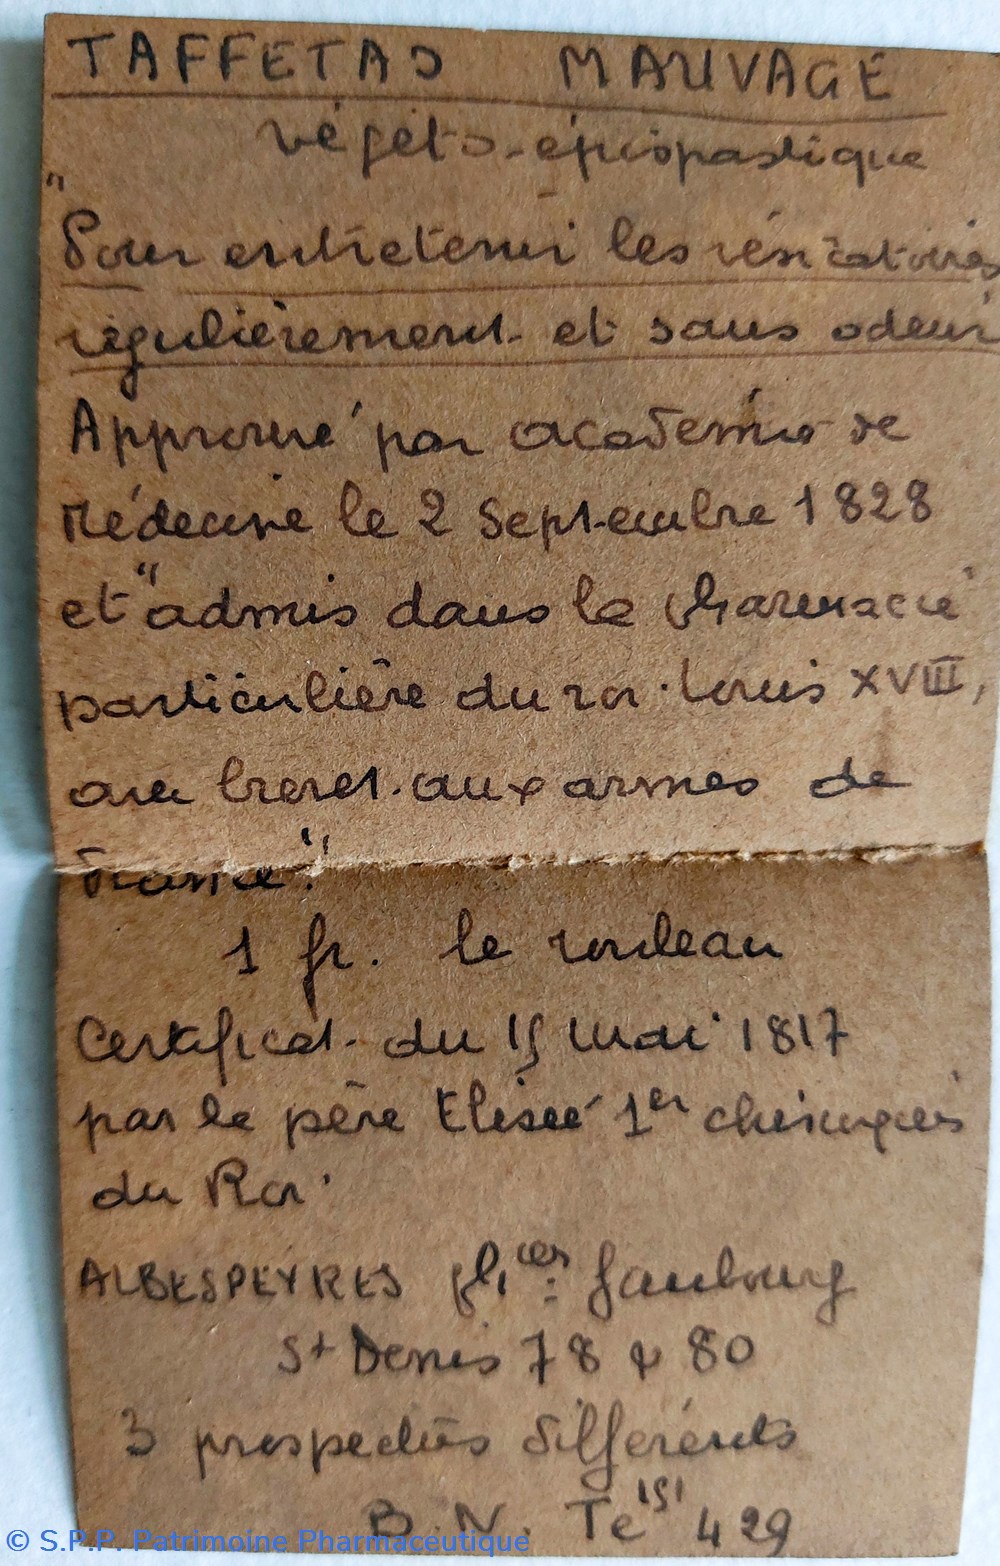 TAFFETAS MAUVAGE
végéto-épispastique
"Pour entretenir les vésicatoires
régulièrement et sans odeur
Approuvé par académie de
Médecine le 2 Septembre 1828
et "admis dans la pharmacie
particulière du roi Louis XVIII,
avec brevet aux armes de
France".
1 fr. le rouleau
Certificat du 15 Mai 1817
par le père Elisée 1er chirurgien
du Roi.
ALBESPEYRES faubourg
St Denis 78 & 80
3 prospectus différents
B.N. Te 151 429
© S.P.P. Patrimoine Pharmaceutique